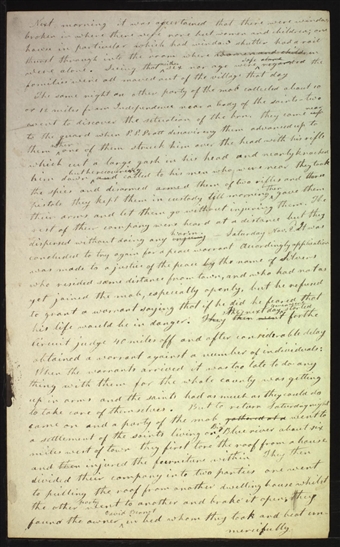 Next morning it was ascertained that there were windows
broken in where there were none but women and children; one
house in particular which had window shutter had a rail
thrust through into the room where women and children
were alone. Seeing that
families were all moved out of the village that day
The same night an other party of the mob collected about 10
or 12 miles from Independence near a body of the saints two
went to discover the situation of the bren. they came up
to the guard when P. P. Pratt discovering them advanced up to
them one of them struck him over the head with his rifle
which cut a large gash in his head and nearly knocked
him down, called to his men who were near they took
the spies and disarmed them of two rifles and three
pistols they kept them in custody till morning then gave them
their arms and let them go without injuring them. The
rest of their company were heard at a distance but they
dispersed without doing any Saturday Nov. 2 It was
concluded to try again for a peace warrant Accordingly application
was made to a justice of the peace by the name of Silvers
who resided some distance from town, and who had not as
yet joined the mob, especially openly, but he refused
to grant a warrant saying that if he did he feared that
his life would be in danger. They next day for the
circuit judge 40 miles off and after considerable delay
obtained a warrant against a number of individuals;
When the warrants arrived it was too late to do any
thing with them for the whole county was getting
up in arms and the saints had as much as they could do
to take care of themselves. But to return Saturday night
came on and a party of the mob went to
a settlement of the saints living on Blue river about six
miles west of town they first tore the roof from a house
and injured the furniture within They then
divided their company into two parties one went
to pulling the roof from another dwelling house whilst
the other party went to another and broke it open, they
found the owner, David Bennet in bed whom they took and beat un-
mercifully